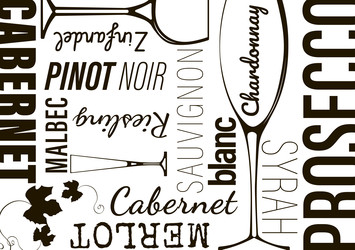 CABERNET
Zinfandel
PINOT NOIR
MALBEC
Riesling
SAUVIGNON
blanc
Chardonnay
SYRAH
PROSECCO
Cabernet
MERLOT